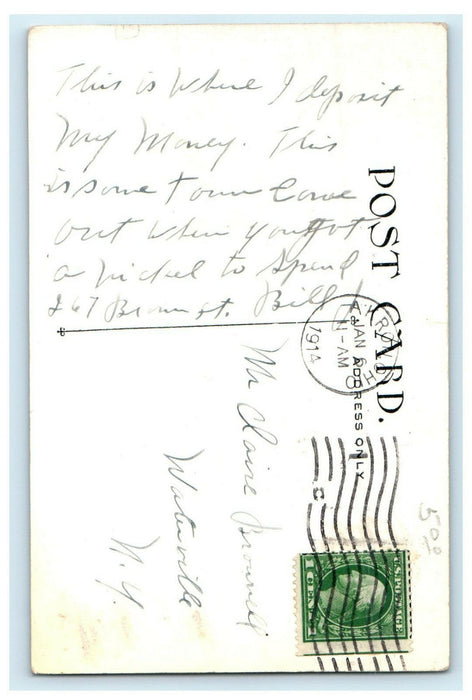 This is where I deposit
my money. This
is some town Come
out when you got
a nickel to spend
267 Brown st. Bill
POST CARD.
ADDRESS ONLY
AKRON, OHIO
JAN
11-AM
1914
Mr Claire Brownell
Waterville
N.Y.
U.S. POSTAGE
1 CENT 1
5.00